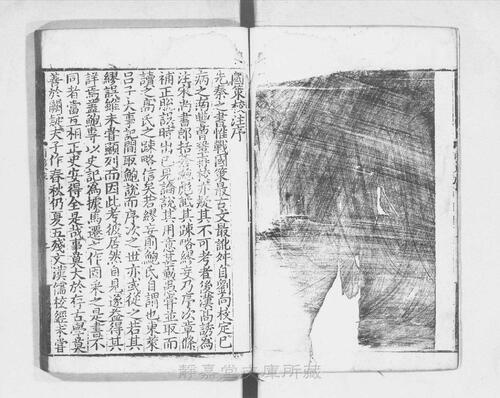 國策校注序
先秦之書惟戰國策最古文最訛舛自劉向校定已
病之南豐曾鞏再校亦疑其不可考者後漢高誘為
注宋尚書郎括蒼鮑彪詆其疎略繆妄乃序次章條
補正脫誤時出己見論說其用意甚勤愚嘗並取而
讀之高氏之疎略信矣若繆妄則鮑氏自謂也東萊
呂子大事記間取鮑說而序次之世亦或從之若其
繆誤雖未嘗顯列而因此考彼居然自見遂益得其
詳焉蓋鮑專以史記為據馬遷之作固采之是書不
同者當互相正史安得全是哉事莫大於存古學莫
善於闕疑夫子作春秋仍夏五殘文漢儒校經未嘗
靜嘉堂文庫所藏